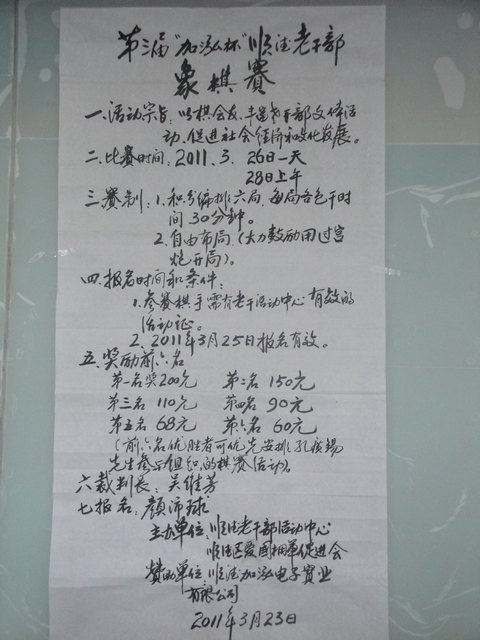 第三届"加泓杯"顺德老干部
象棋賽
一.活动宗旨:以棋会友.丰富老干部文体活
动.促进社会经济和文化发展。
二.比賽时间:2011.3.26日一天
28日上午
三.賽制:1.积分编排六局.每局各包干时
间30分钟。
2.自由布局.(大力鼓励用过宫
炮开局)。
四.报名时间和条件:
1.参賽棋手需有老干活动中心有效的
活动证。
2.2011年3月25日报名有效。
五.奖励前六名
第一名奖200元 第二名150元
第三名110元 第四名90元
第五名68元 第六名60元
(前六名优胜者可优先安排孔
先生参与组织的棋賽活动)。
六裁判長:吴维芳
七报名:顏沛球
主办单位:顺德老干部活动中心
顺德区爱国拥軍促进会
赞助单位:顺德加泓电子实业
有限公司
2011年3月23日